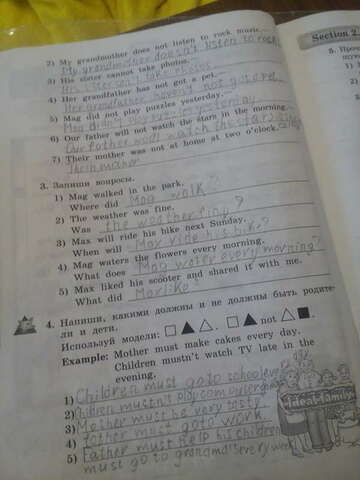 2) My grandmother does not listen to rock music.
My grandmother doesn't listen to rock
3) His sister cannot take photos.
His sister can't take photos
4) Her grandfather has not got a pet.
Her grandfather haven't not got a pet.
5) Mag did not play puzzles yesterday.
Mag didn't play puzzles yesterday
6) Our father will not watch the stars in the morning.
Our father will watch the stars
7) Their mother was not at home at two o'clock.
Their mather
3. Запиши вопросы.
1) Mag walked in the park.
Where did Mag walk?
2) The weather was fine.
Was the weather fine?
3) Max will ride his bike next Sunday.
When will Max ride his bike?
4) Mag waters the flowers every morning.
What does Mag water every morning?
5) Max liked his scooter and shared it with me.
What did Max like?
4. Напиши, какими должны и не должны быть родители
ли и дети.
Используй модели:
not
Example: Mother must make cakes every day.
Children mustn't watch TV late in the
evening.
1) Children must go to school every
2) Children mustn't play computer games
3) Mother must be very tasty
4) father must go to work
5) Father must help his children
must go to grandma's every week
Ideal family
Section 2.
5.